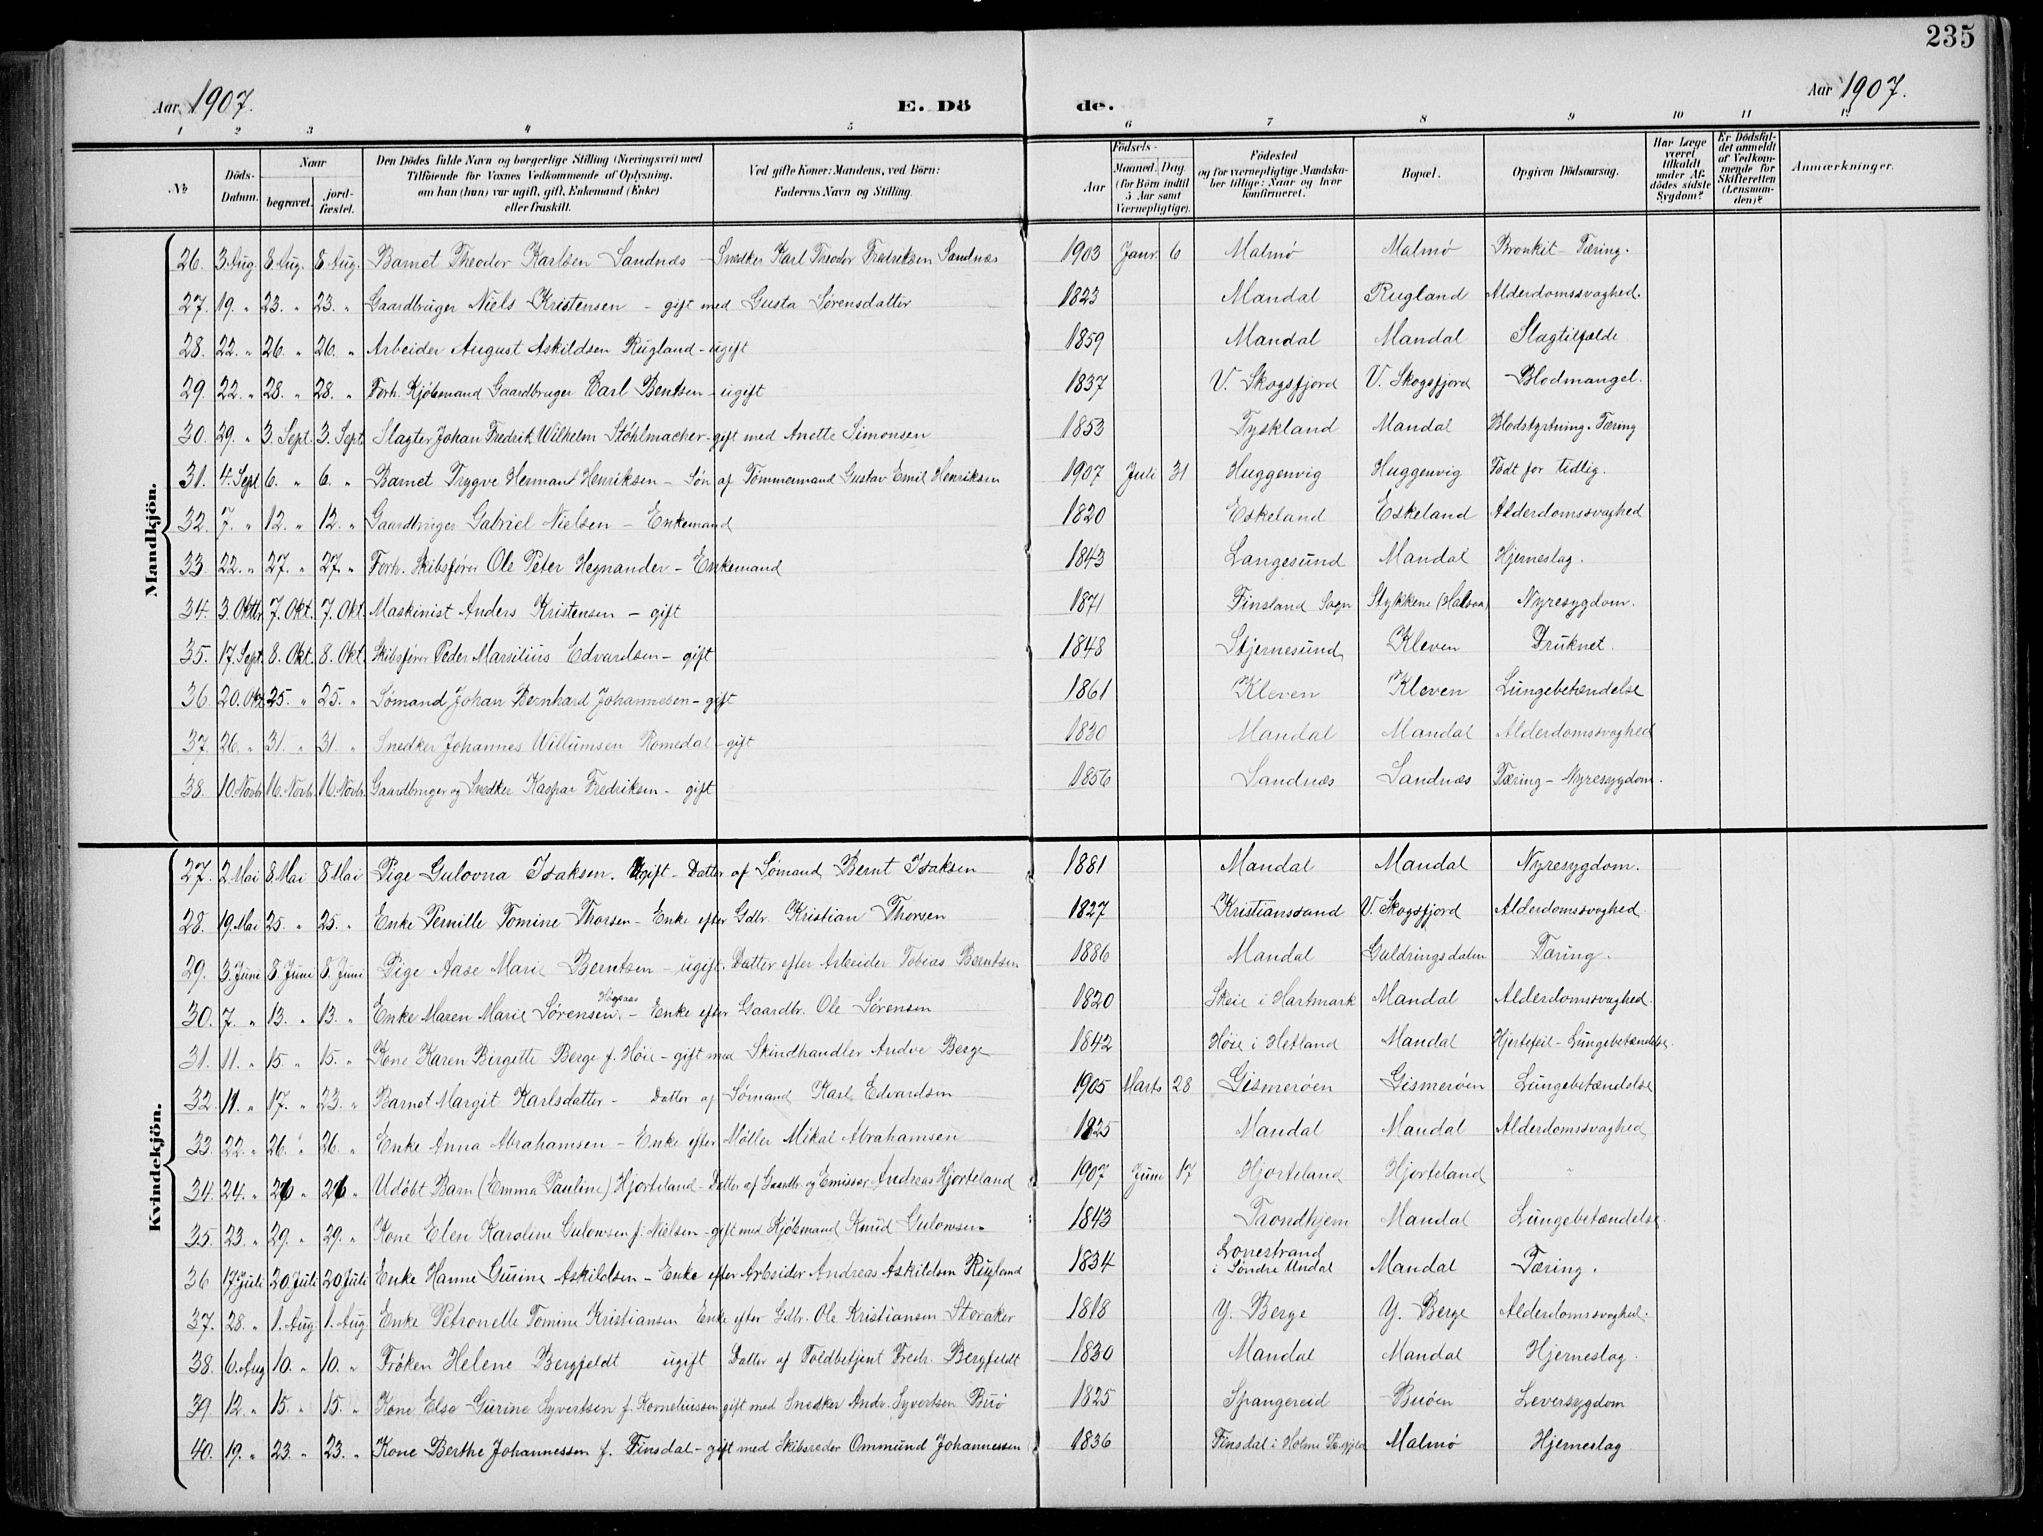 235
Aar 1907. E. Dö de. Aar 1907.
1 2 3 4 5 6 7 8 9 10 11 12
№ Döds-Datum. Naar begravet. jord-fæstet. Den Dödes fulde Navn og borgerlige Stilling (Næringsvei) med Tilföiende for Voxnes Vedkommende af Oplysning, om han (hun) var ugift, gift, Enkemand (Enke) eller fraskilt. Ved gifte Koner: Mandens, ved Börn: Faderens Navn og Stilling. Aar Födsels- Maaned. Dag. (for Børn indtil 5 Aar samt Værnepligtige). Födested og for værnepligtige Mandskaber tillige: Naar og hvor konfirmeret. Bopæl. Opgiven Dödsaarsag. Har Læge været tilkaldt under Afdödes sidste Sygdom? Er Dödsfaldet anmeldt af Vedkommende for Skifteretten (Lensmanden)? Anmærkninger.
Mandkjön.
26. 3. Aug. 8 Aug. 8 Aug. Barnet Theodor Karlsen Sandnæs - Snedker Karl Theodor Fredriksen Sandnæs 1903 Janr. 6 Malmø Malmø Bronkit - Tæring.
27. 19. " 23. " 23. " Gaardbruger Niels Kristensen - gift med Gusta Sørensdatter 1823 Mandal Rugland Alderdomssvaghed.
28. 22. " 26. " 26. " Arbeider August Askildsen Rugland - ugift 1859 Mandal Mandal Slagtilfælde
29. 22. " 28. " 28. " Forh. Kjøbmand Gaardbruger Carl Bentsen - ugift 1837 V. Skogsfjord V. Skogsfjord Blodmangel.
30. 29. " 3. Sept. 3. Sept. Slagter Johan Fredrik Wilhelm Stöhlmacher - gift med Anette Simonsen 1853 Tyskland Mandal Blodstyrtning. Tæring
31. 4. Sept. 6. " 6. " Barnet Trygve Hermant Henriksen - Søn af Tømmermand Gustav Emil Henriksen 1907 Juli 31 Huggenvig Huggenvig Født for tidlig.
32. 7. " 12. " 12. " Gaardbruger Gabriel Nielsen - Enkemand 1820 Eskeland Eskeland Alderdomssvaghed
33. 22. " 27. " 27. " Forh. Skibsfører Ole Peter Hegnander - Enkemand 1843 Langesund Mandal Hjerneslag.
34. 3. Oktbr. 7. Okt. 7. Okt. Maskinist Anders Kristensen - gift 1871 Finsland Sogn Stykkene (Halsaa) Nyresygdom.
35. 17. Sept. 8. Okt. 8. Okt. Skibsfører Peder Marsilius Edvardsen - gift 1848 Stjernesund Kleven Druknet.
36. 20. Okt. 25. " 25. " Sømand Johan Bernhard Johannesen - gift 1861 Kleven Kleven Lungebetændelse
37. 26. " 31. " 31. " Snedker Johannes Willumsen Romedal - gift 1830 Mandal Mandal Alderdomssvaghed
38. 10. Novbr. 16. Novbr. 16. Novbr. Gaardbruger og Snedker Kaspar Fredriksen - gift 1856 Sandnæs Sandnæs Tæring - Nyresygdom.
Kvindekjön.
27. 2. Mai 8. Mai 8 Mai Pige Gulovna Isaksen. Ugift - Datter af Sømand Bernt Isaksen 1881 Mandal Mandal Nyresygdom.
28. 19. Mai 25. " 25. " Enke Pernille Tomine Thorsen - Enke efter Gdbr. Kristian Thorsen 1827 Kristianssand V. Skogsfjord Alderdomssvaghed.
29. 3. Juni 8. Juni 8. Juni Pige Aase Marie Berntsen - ugift. Datter efter Arbeider Tobias Berntsen 1886 Mandal Guldringsdalen Tæring.
30. 7. " 13. " 13. " Enke Maren Marie Sørensen - Enke efter Gaardbr. Ole Sørensen 1820 Skeie i Hartmark Mandal Alderdomssvaghed.
31. 11. " 15. " 15. " Kone Karen Birgitte Berge f. Høie - gift med Skindhandler Andve Berge 1842 Høie i Hetland Mandal Hjertefeil - Lungebetændelse.
32. 11. " 17. " 23. " Barnet Margit Karlsdatter - Datter af Sømand Karl Edvardsen 1905 Marts 28 Gismerøen Gismerøen Lungebetændelse
33. 22. " 26. " 26. " Enke Anna Abrahamsen - Enke efter Møller Mikal Abrahamsen 1825 Mandal Mandal Alderdomssvaghed
34. 24. " 26 " 26 " Udøbt Barn (Emma Pauline) Hjorteland - Datter af Gaardbr. og Emissær Andreas Hjorteland 1907 Juni 17 Hjorteland Hjorteland "
35. 23. " 29. " 29. " Kone Elen Karoline Gulowsen f. Nielsen - gift med Kjøbmand Knud Gulowsen 1843 Trondhjem Mandal Lungebetændelse
36 17. Juli 20. Juli 20. Juli Enke Hanne Gurine Askildsen - Enke efter Arbeider Andreas Askildsen Rugland 1834 Lonestrand i Søndre Undal Mandal Tæring.
37. 28. " 1. Aug 1. Aug Enke Petronelle Tomine Kristiansen Enke efter Gdbr. Ole Kristiansen Storaker 1818 Y. Berge Y. Berge Alderdomssvaghed.
38. 6. Aug 10. " 10. " Frøken Helene Bergfeldt ugift Datter af Toldbetjent Fredr. Bergfeldt 1830 Mandal Mandal Hjerneslag.
39 12. " 15. " 15. " Kone Else Gurine Syvertsen f. Korneliussen gift med Snedker Andr. Syvertsen Buø 1825 Spangereid Buøen Leversygdom
40. 19. " 23. " 23. " Kone Berthe Johannessen f. Finsdal - gift med Skibsreder Ommund Johannessen 1836 Finsdal i Holme Malmø Hjerneslag